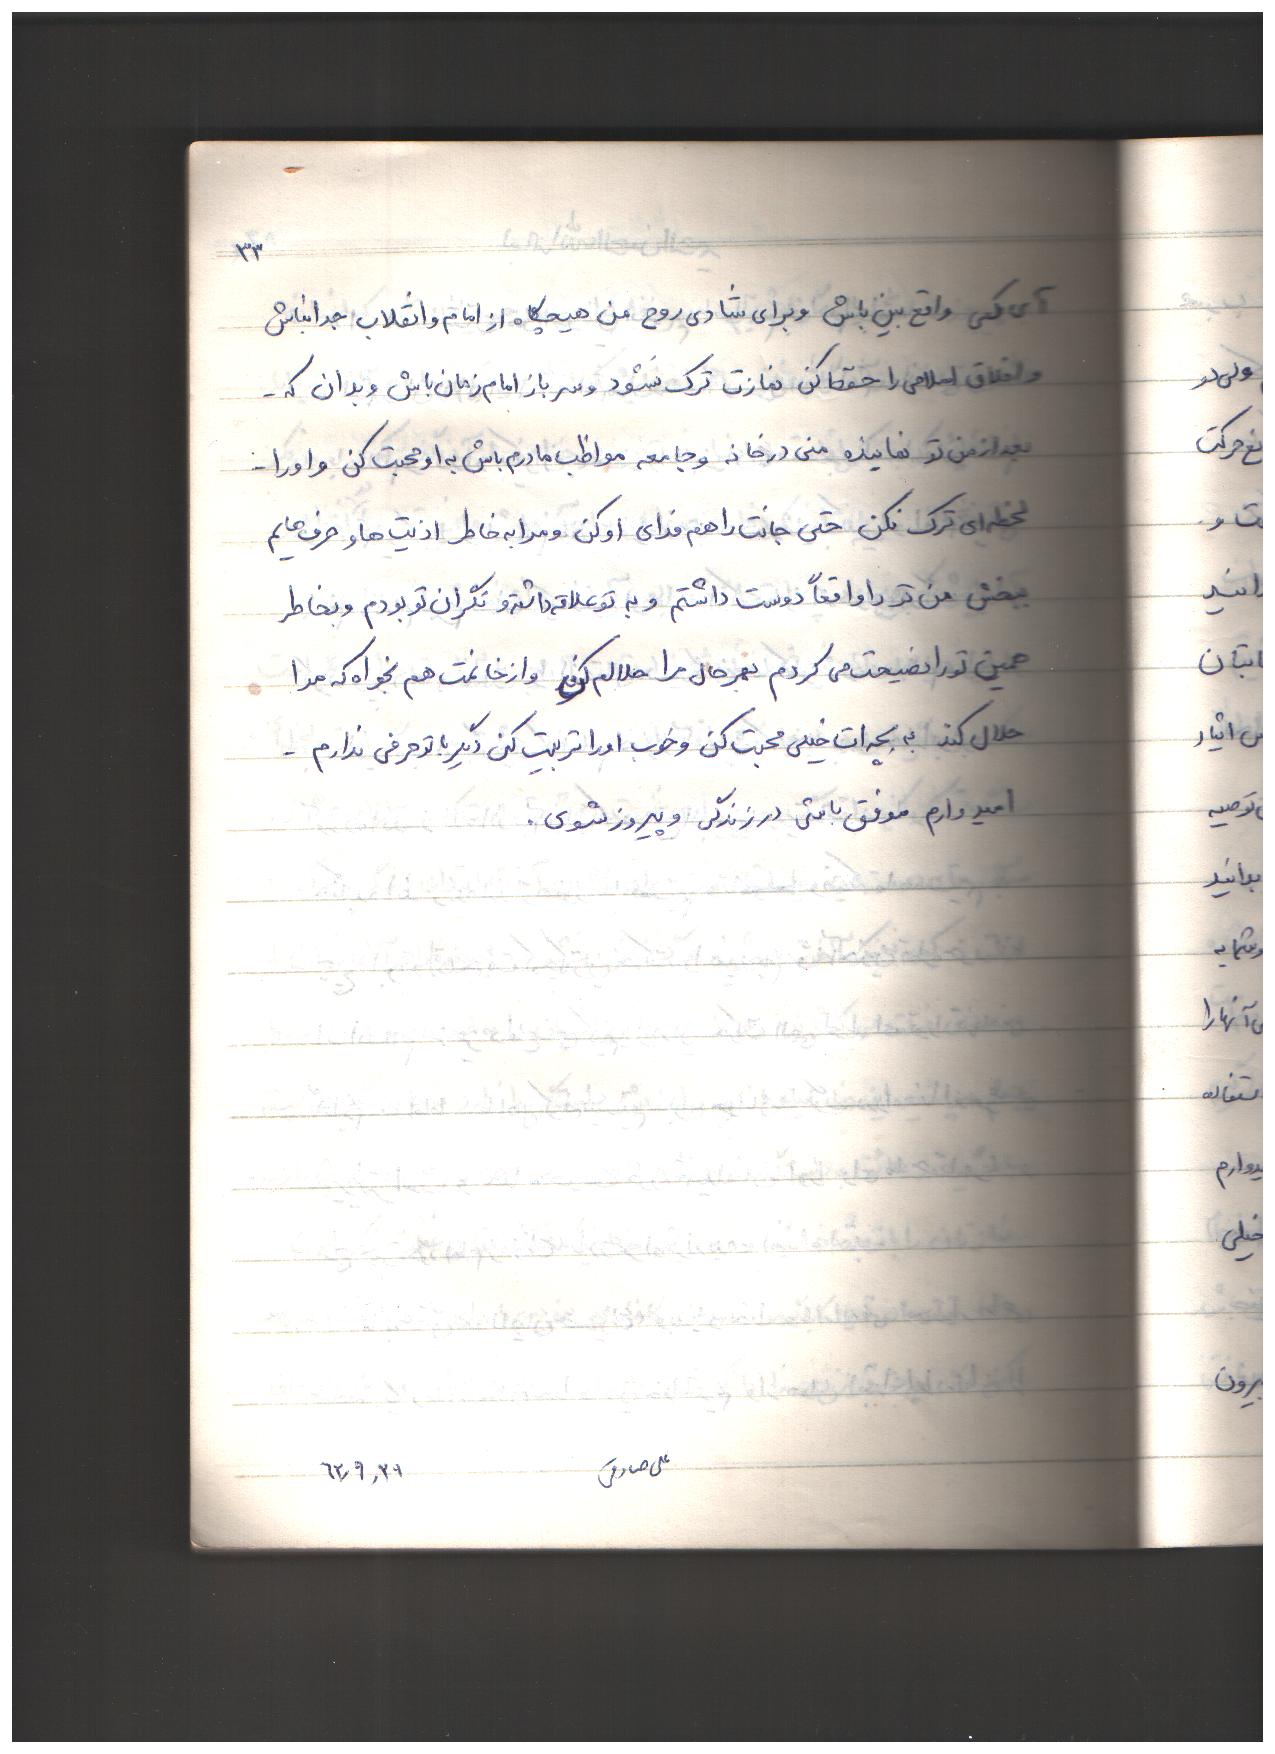 ۳۳
آی کنی واقع بین باش و برای شادی روح من هیچگاه از امام و انقلاب جدا نباش
و اخلاق اسلامی را حفظ کن نمازت ترک نشود و سرباز امام زمان باش و بدان که -
بعد از من تو نماینده منی در خانه و جامعه مواظب مادرم باش به او محبت کن و او را -
لحظه‌ای ترک نکن حتی جانت را هم فدای او کن و مرا به خاطر اذیت ها و حرف هایم
ببخش من تو را واقعاً دوست داشتم و به تو علاقه داشته و نگران تو بودم و بخاطر
همین تو را نصیحت می کردم بهر حال مرا حلالم کن و از خانمت هم بخواه که مرا
حلال کند به بچه ات خیلی محبت کن و خوب او را تربیت کن دیگر با تو حرفی ندارم -
امیدوارم موفق باشی در زندگی و پیروز شوی .
علی صادقی
ولی در
حرکت
ت و
ایثار
توصیه
بدانید
آنها را
استفاده
خیلی
بیرون